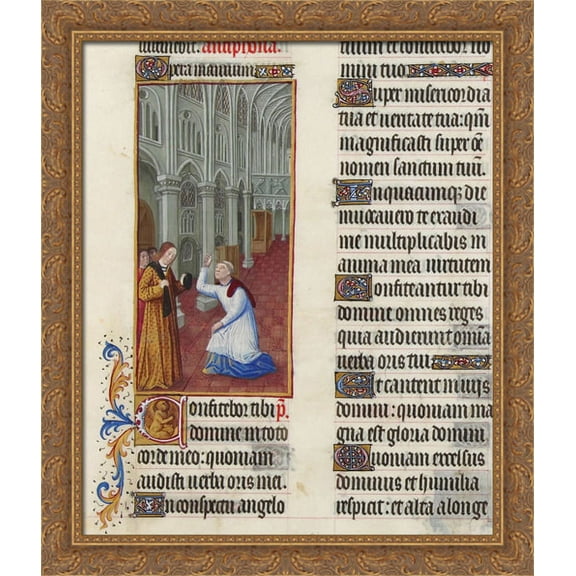 antiphona.
Opera manuum
Confitebor tibi
domine in toto
corde meo: quoniam
audisti uerba oris mei.
In conspectu angelo
num et confitebor no
mini tuo.
Super misericordia
tua et ueritate tua: qm̄
magnificasti super oē
nomen sanctum tuū.
In quacumq; die
inuocauero te exaudi
me multiplicabis in
anima mea uirtutem
Confiteantur tibi
domine omnes reges
quia audierunt omīa
uerba oris tui
Et cantent in uijs
domini: quoniam ma
gna est gloria domini
Quoniam excelsus
dominus et humilia
respicit: et alta a longe